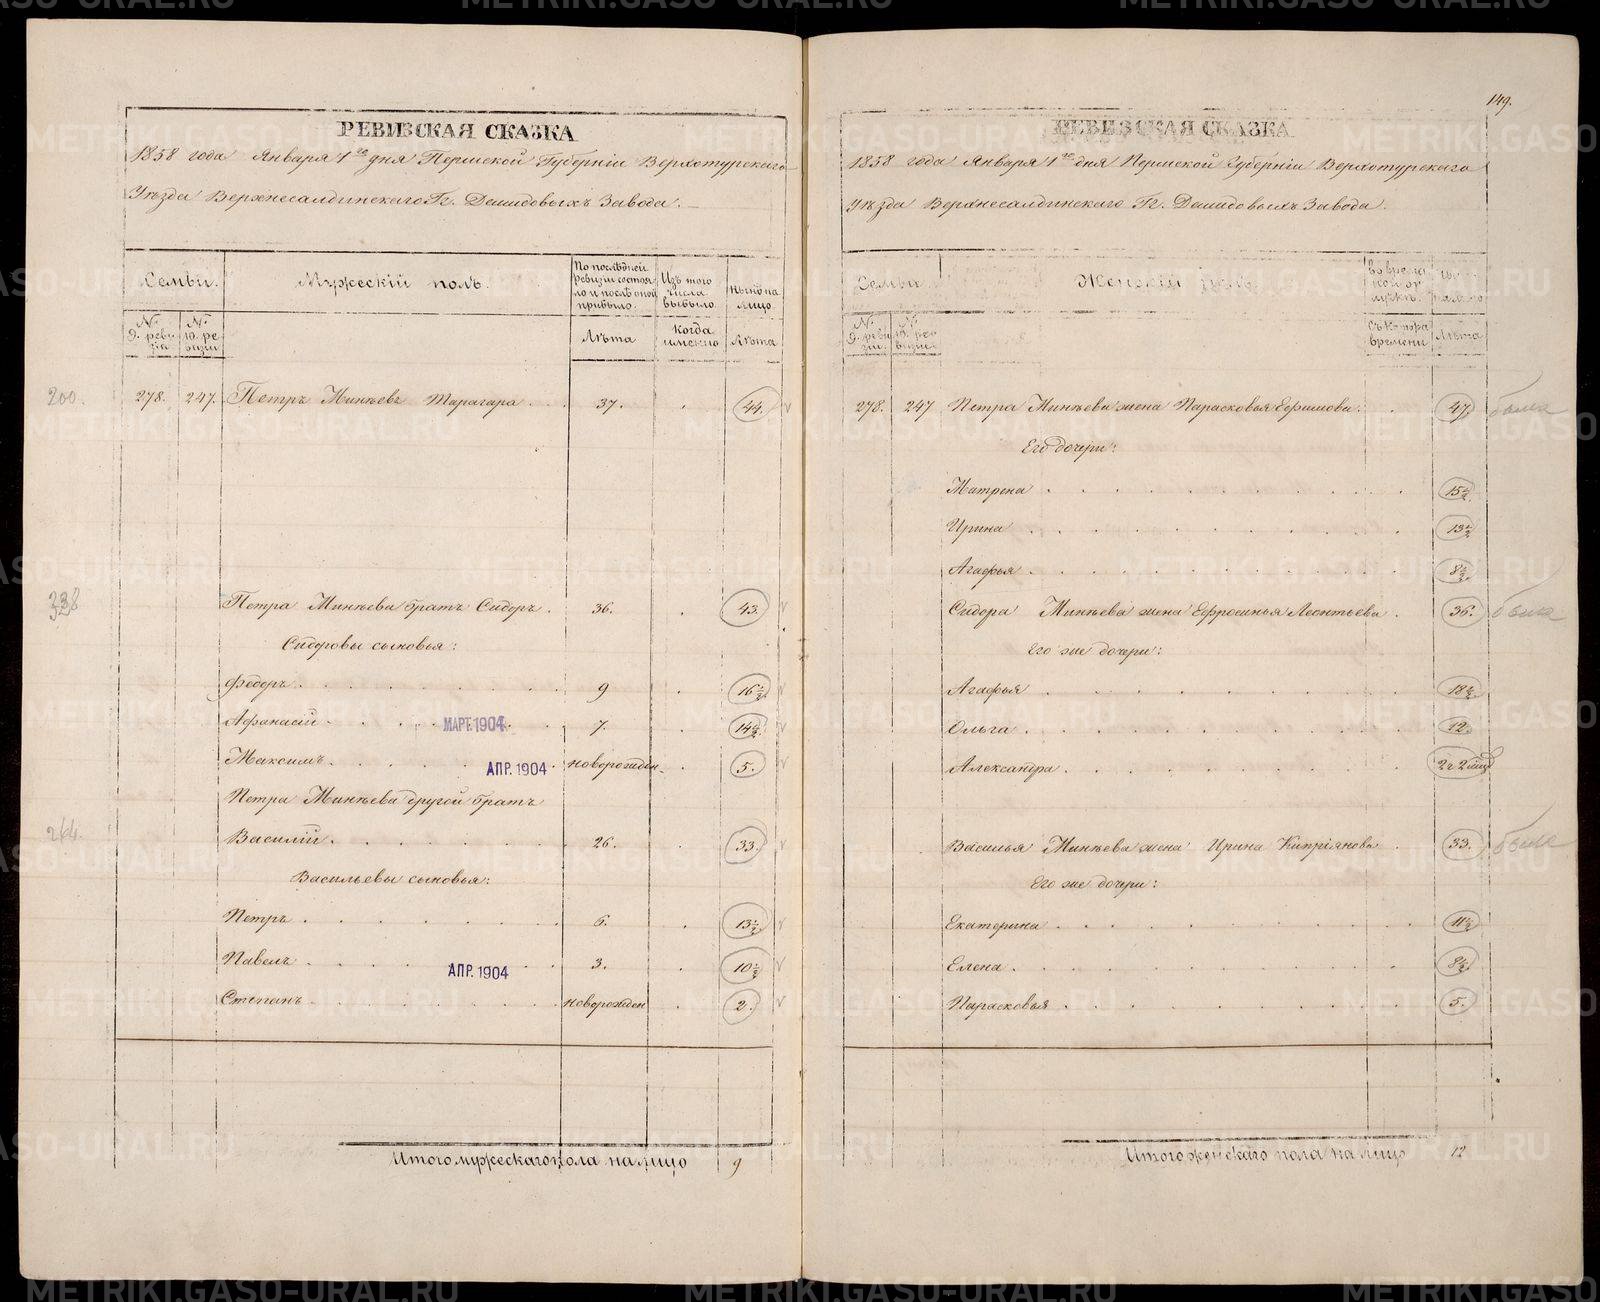 149.
РЕВИЗСКАЯ СКАЗКА
1858 года Января 1го дня Пермской Губерніи Верхотурскаго
Уѣзда Верхнесалдинскаго Гг. Демидовыхъ Завода.
Семьи.
Мужескій полъ.
По послѣдней ревизіи состояло и послѣ того прибыло.
Изъ того числа выбыло
Нынѣ на лицо.
№ 9. ревизіи
№ 10. ревизіи
Лѣта
Когда именно
Лѣта
200.
278. 247. Петръ Минѣевъ Тарагара 37. 44.
338
Петра Минѣева братъ Сидоръ. 36. 43.
Сидоровы сыновья:
Федоръ 9 16½
Афанасій 7. 14½
МАРТ. 1904
Максимъ новорожден. 5.
АПР. 1904
Петра Минѣева другой братъ
264.
Василій 26. 33.
Васильевы сыновья:
Петръ 6. 13½
Павелъ 3. 10½
АПР. 1904
Степанъ новорожден 2.
Итого мужескаго пола на лицо 9
РЕВИЗСКАЯ СКАЗКА
1858 года Января 1го дня Пермской Губерніи Верхотурскаго
Уѣзда Верхнесалдинскаго Гг. Демидовыхъ Завода.
Семьи
Женскій полъ.
Съ котора времени
Лѣта
№ 9. ревизіи.
№ 10. ревизіи.
278. 247 Петра Минѣева жена Парасковья Ефимова. 47.
Его дочери:
Матрена 15½
Ирина 13½
Агафья 8½
Сидора Минѣева жена Ефросинья Леонтьева. 36.
Его же дочери:
Агафья 18½
Ольга 12.
Александра 2 г 2 мѣс
Василья Минѣева жена Ирина Кипріянова 33.
Его же дочери:
Екатерина 11½
Елена 8½
Парасковья 5.
Итого женскаго пола на лицо 12
METRIKI.GASO-URAL.RU